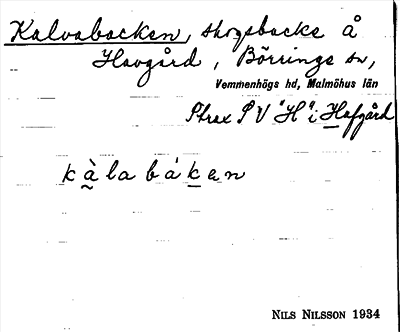 Kalvabacken, skogsbacke å
Havgård, Börringe sn,
Vemmenhögs hd, Malmöhus län
Strax SV "H" i Hafgård
kàlabáken
NILS NILSSON 1934